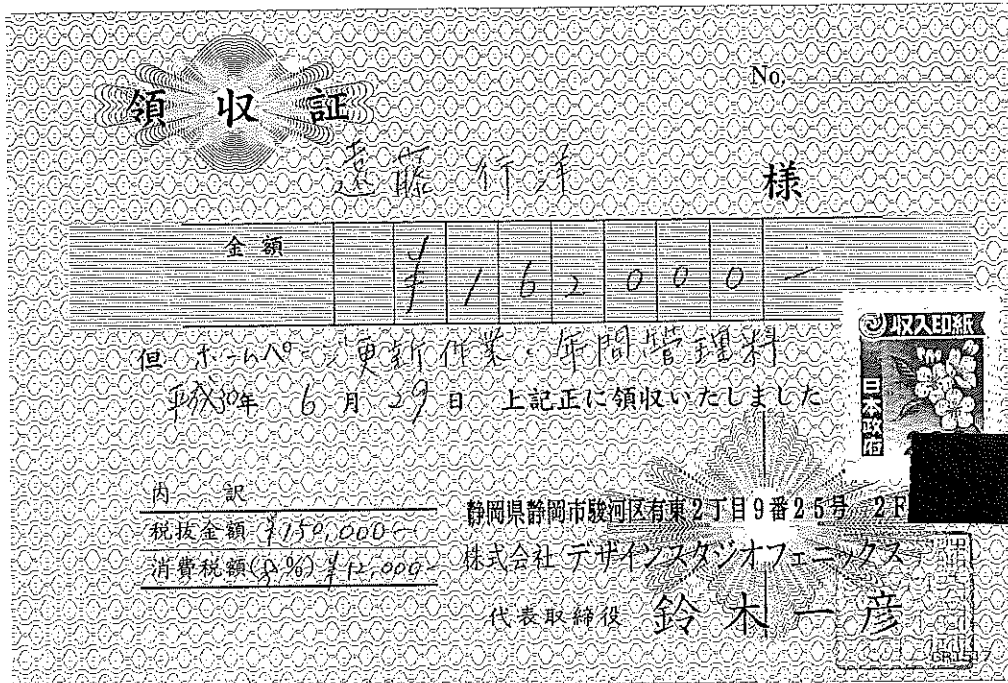 No.
領収証
遠藤行洋 様
金額 ¥162000—
但 ホームページ更新作業・年間管理料
平成30年 6月29日 上記正に領収いたしました
収入印紙
日本政府
内訳
税抜金額 ¥150,000—
消費税額(8%) ¥12,000—
静岡県静岡市駿河区有東2丁目9番25号 2F
株式会社デザインスタジオフェニックス
代表取締役 鈴木一彦